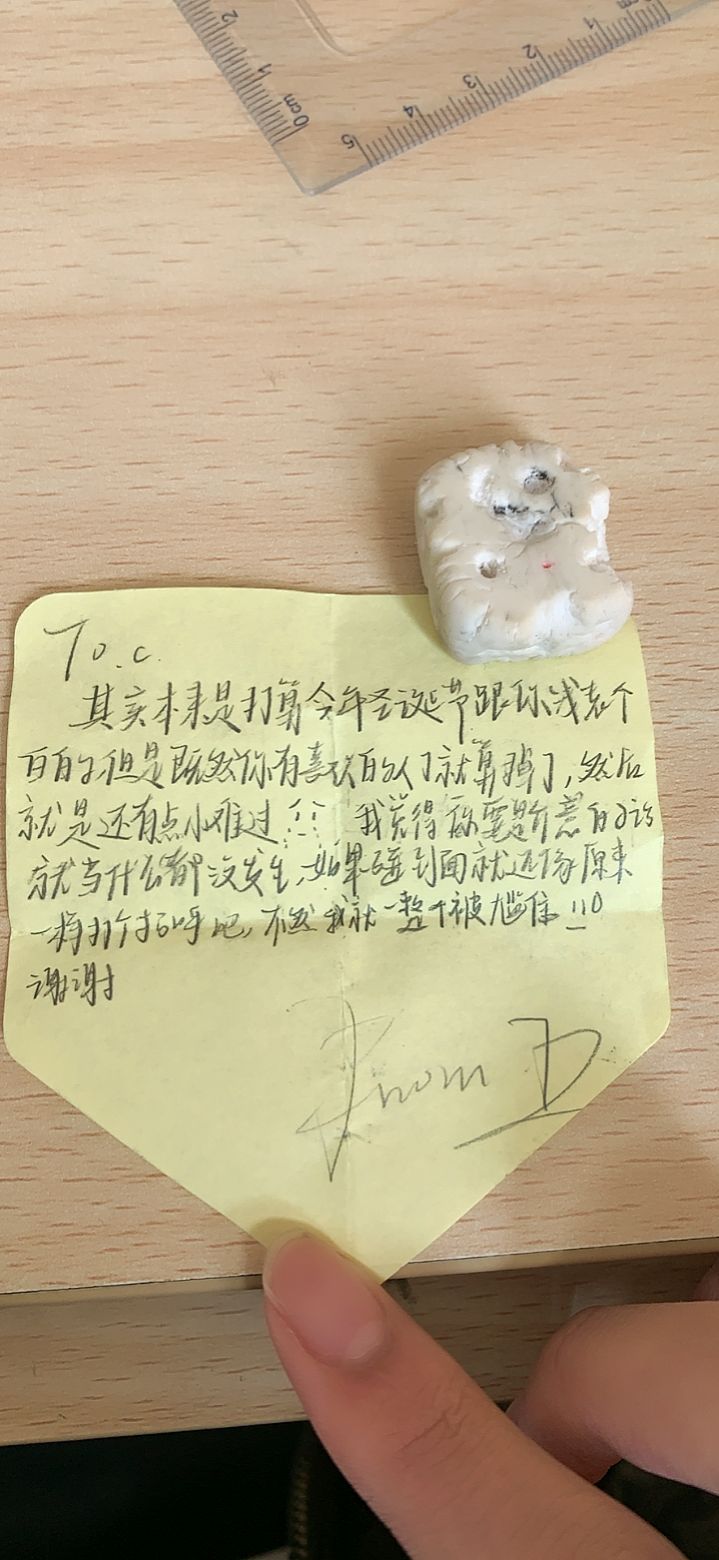 2
1
0cm
5
4
3
2
1
To.c.
其实本来是打算今年圣诞节跟你浅表个
白的,但是既然你有喜欢的人了就算掉了,然后
就是还有点小难过 我觉得你要是介意的话
就当什么都没发生,如果碰到面就还像原来
一样打个招呼吧,不然我就一整个被尴住!!!
谢谢
From D